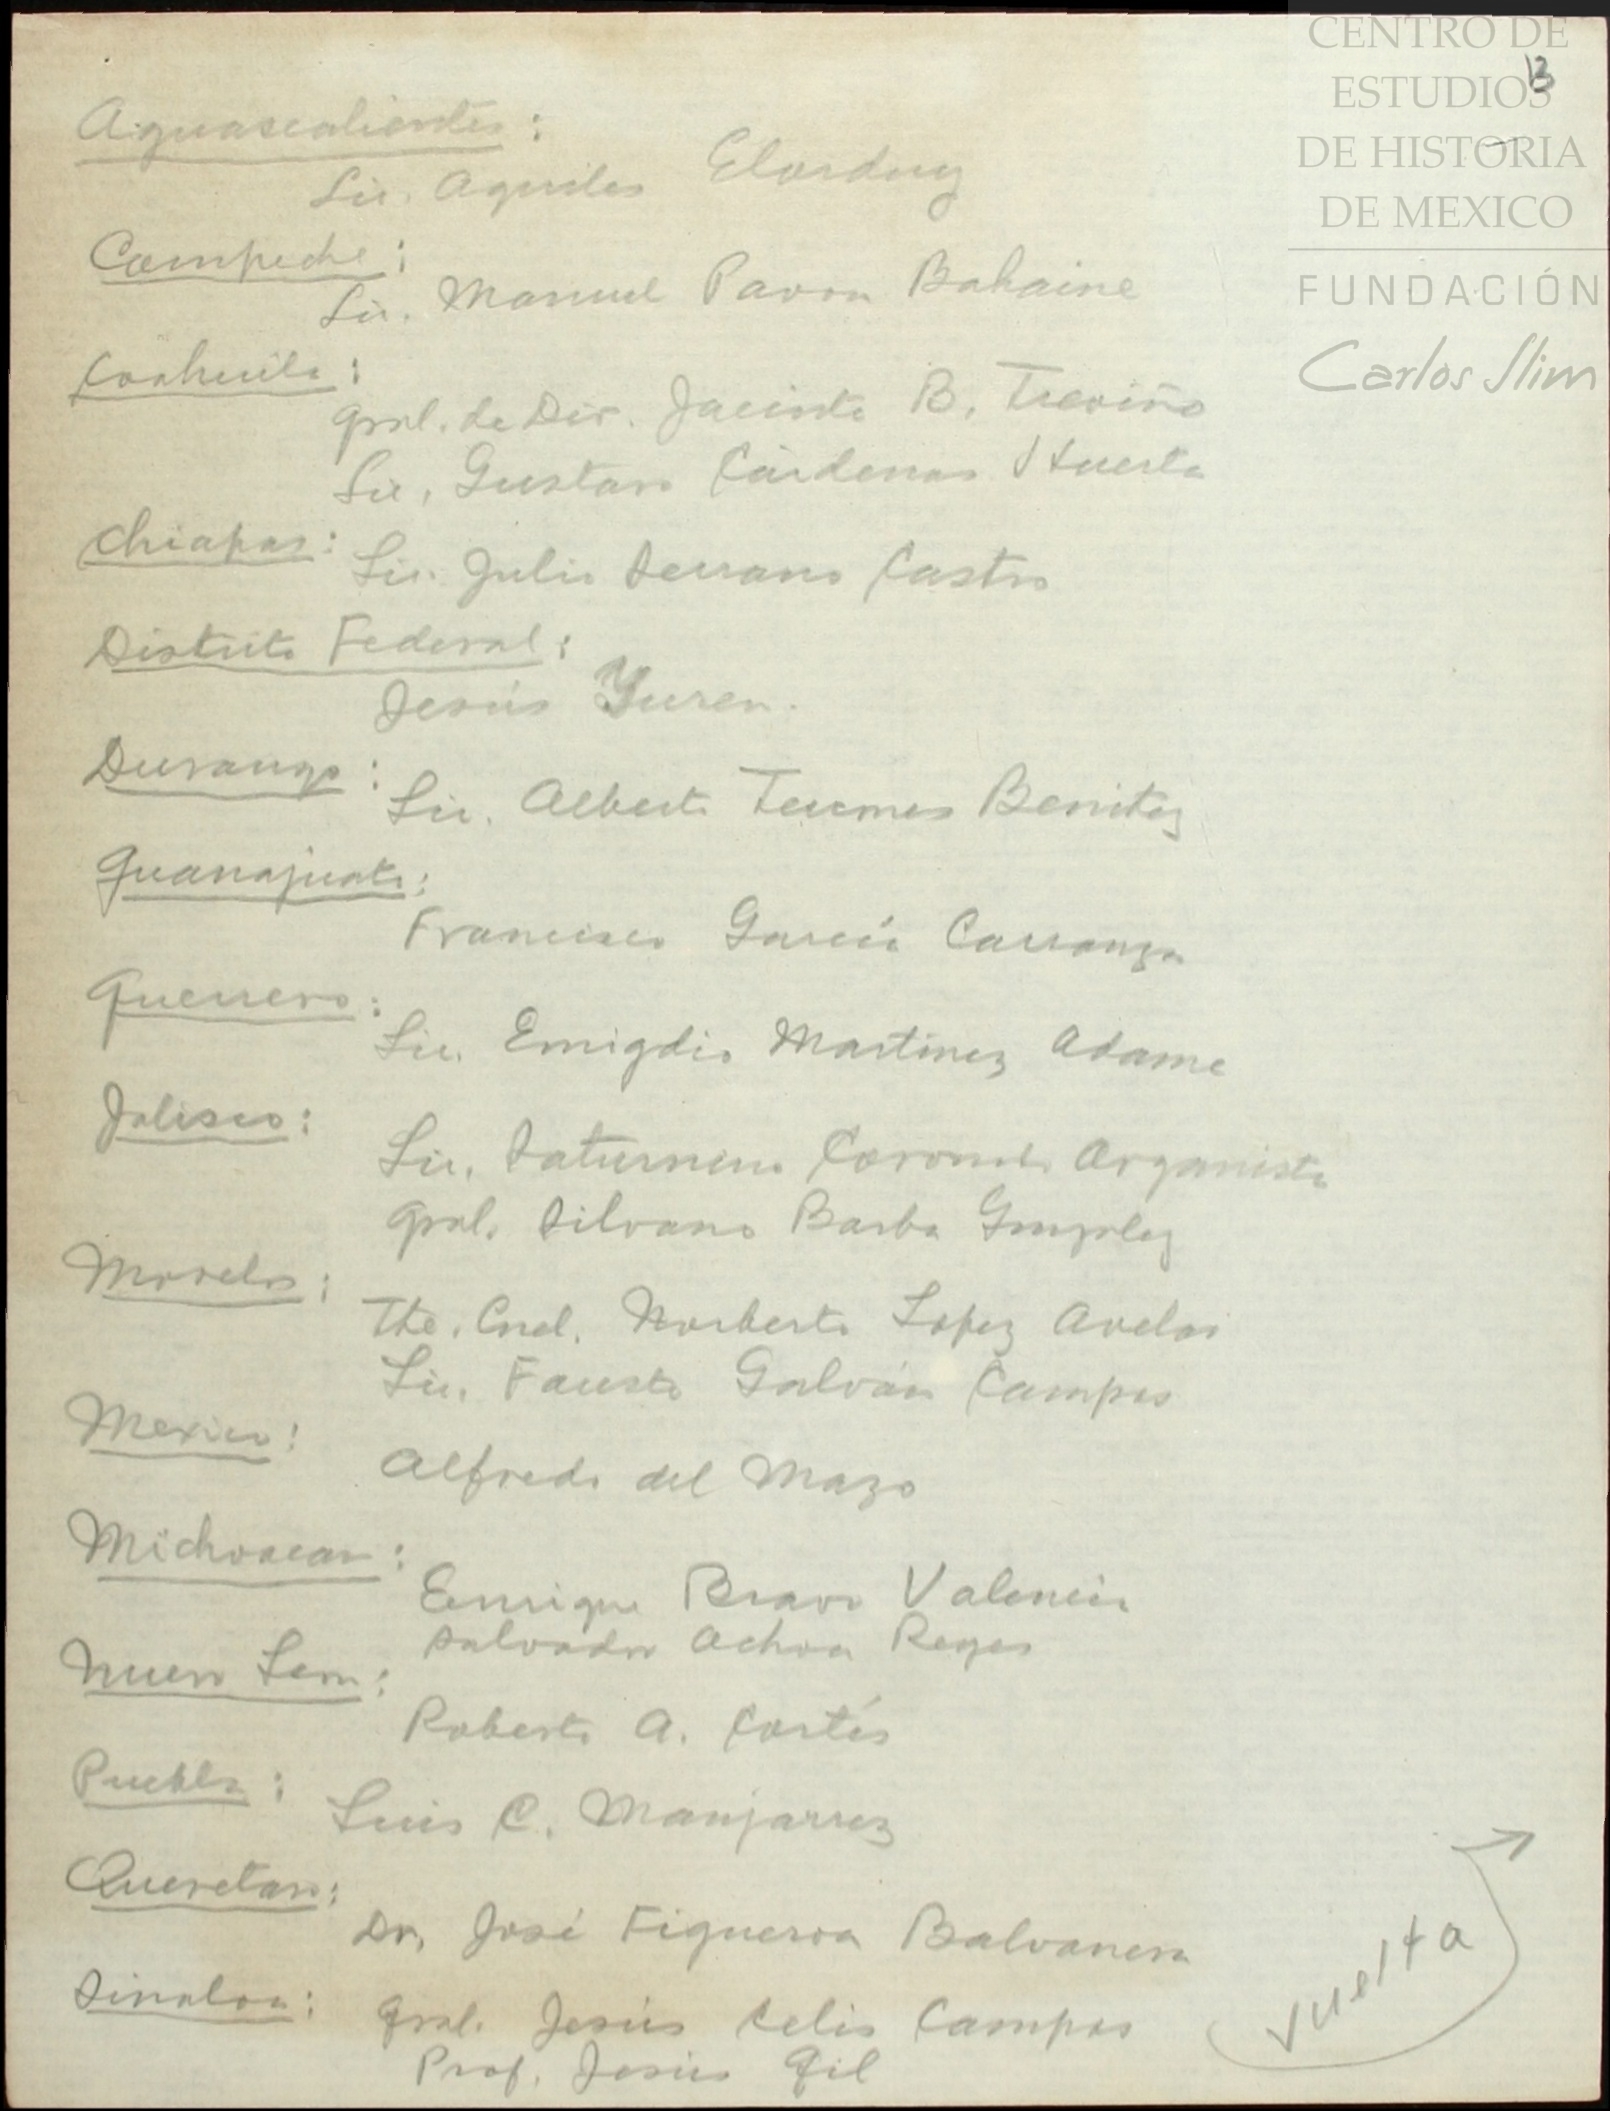 CENTRO DE
ESTUDIOS
DE HISTORIA
DE MEXICO
FUNDACIÓN
Carlos Slim
13
Aguascalientes:
Lic. Aquiles Elorduy
Campeche:
Lic. Manuel Pavon Bahaine
Coahuila:
Gral. de Div. Jacinto B. Treviño
Lic. Gustavo Cárdenas Huerta
Chiapas:
Lic. Julio Serrano Castro
Distrito Federal:
Jesús Yuren.
Durango:
Lic. Alberto Terrones Benitez
Guanajuato:
Francisco García Carranza
Guerrero:
Lic. Emigdio Martinez Adame
Jalisco:
Lic. Saturnino Coronado Organista
Gral. Silvano Barba Gonzalez
Morelos:
Tte. Cnel. Norberto Lopez Avelar
Lic. Fausto Galván Campos
Mexico:
Alfredo del Mazo
Michoacan:
Enrique Bravo Valencia
Salvador Ochoa Reyes
Nuevo Leon:
Roberto A. Cortés
Puebla:
Luis C. Manjarrez
Queretaro:
Dr. José Figueroa Balvanera
Sinaloa:
Gral. Jesús Celis Campos
Prof. Jesús Gil
vuelta